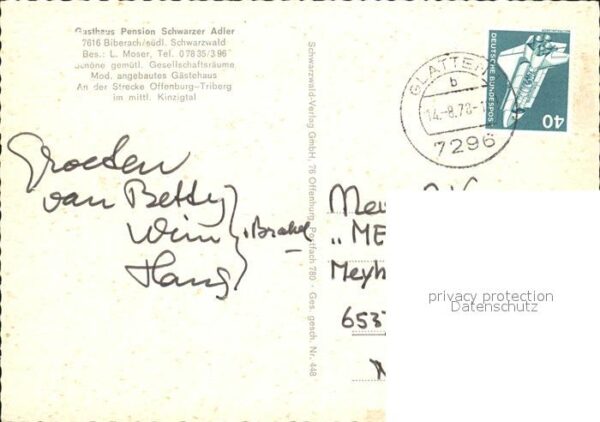 Gasthaus Pension Schwarzer Adler
7616 Biberach/südl. Schwarzwald
Bes.: L. Moser, Tel. 0 78 35/3 96
Schöne gemütl. Gesellschaftsräume
Mod. angebautes Gästehaus
An der Strecke Offenburg-Triberg
im mittl. Kinzigtal
Groeten
van Betty
Wim
Hans
Brakel
Schwarzwald-Verlag GmbH, 76 Offenburg, Postfach 780 · Ges. gesch. Nr. 448
GLATTEN
b
14.-8.78-
7296
DEUTSCHE BUNDESPOST
40
„ME
Meyh
653
privacy protection
Datenschutz